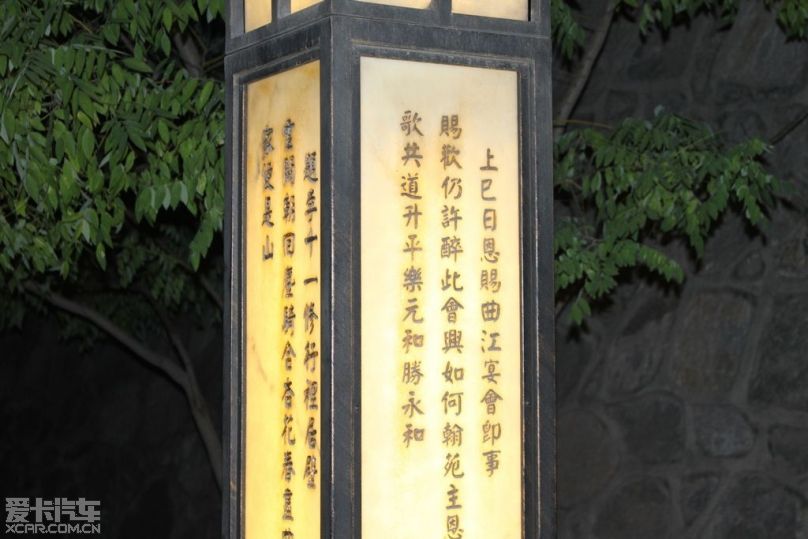 上巳日恩賜曲江宴會即事
賜歡仍許醉此會興如何翰苑主恩
歌共道升平樂元和勝永和
題
十一修行裡居壁
騎舍杏花春
家便是山
爱卡汽车
XCAR.COM.CN